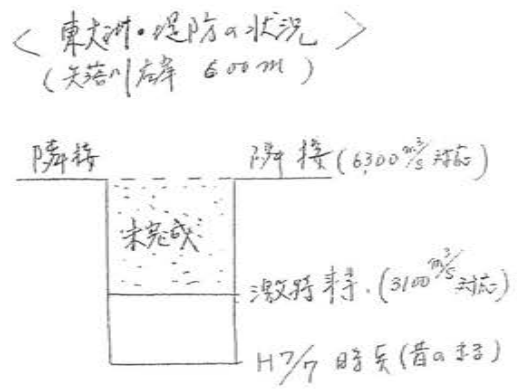 < 東大洲・堤防の状況 >
(矢落川左岸 600m)
隣接
隣接(6,300m³/s対応)
未完成
激特事.(3100m³/s対応)
H7/7時点(昔のまま)